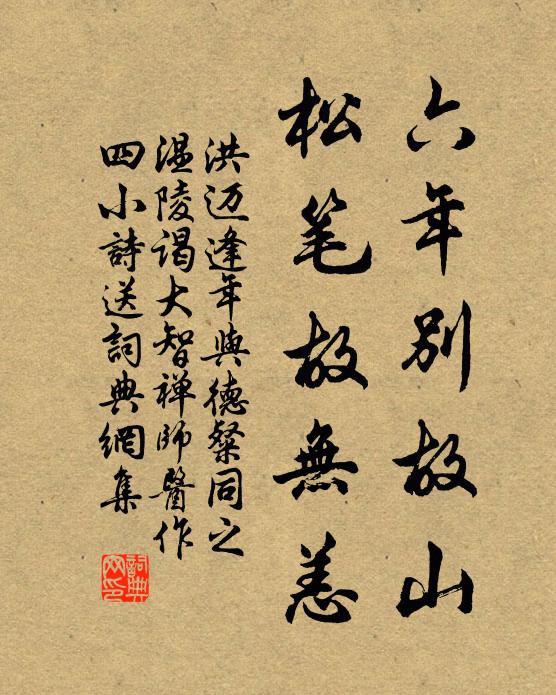 六年别故山
松笔故無恙
洪迈逢年與德粲同之
温陵谒大智禅师醫作
四小詩送詞典網集
詞典网印